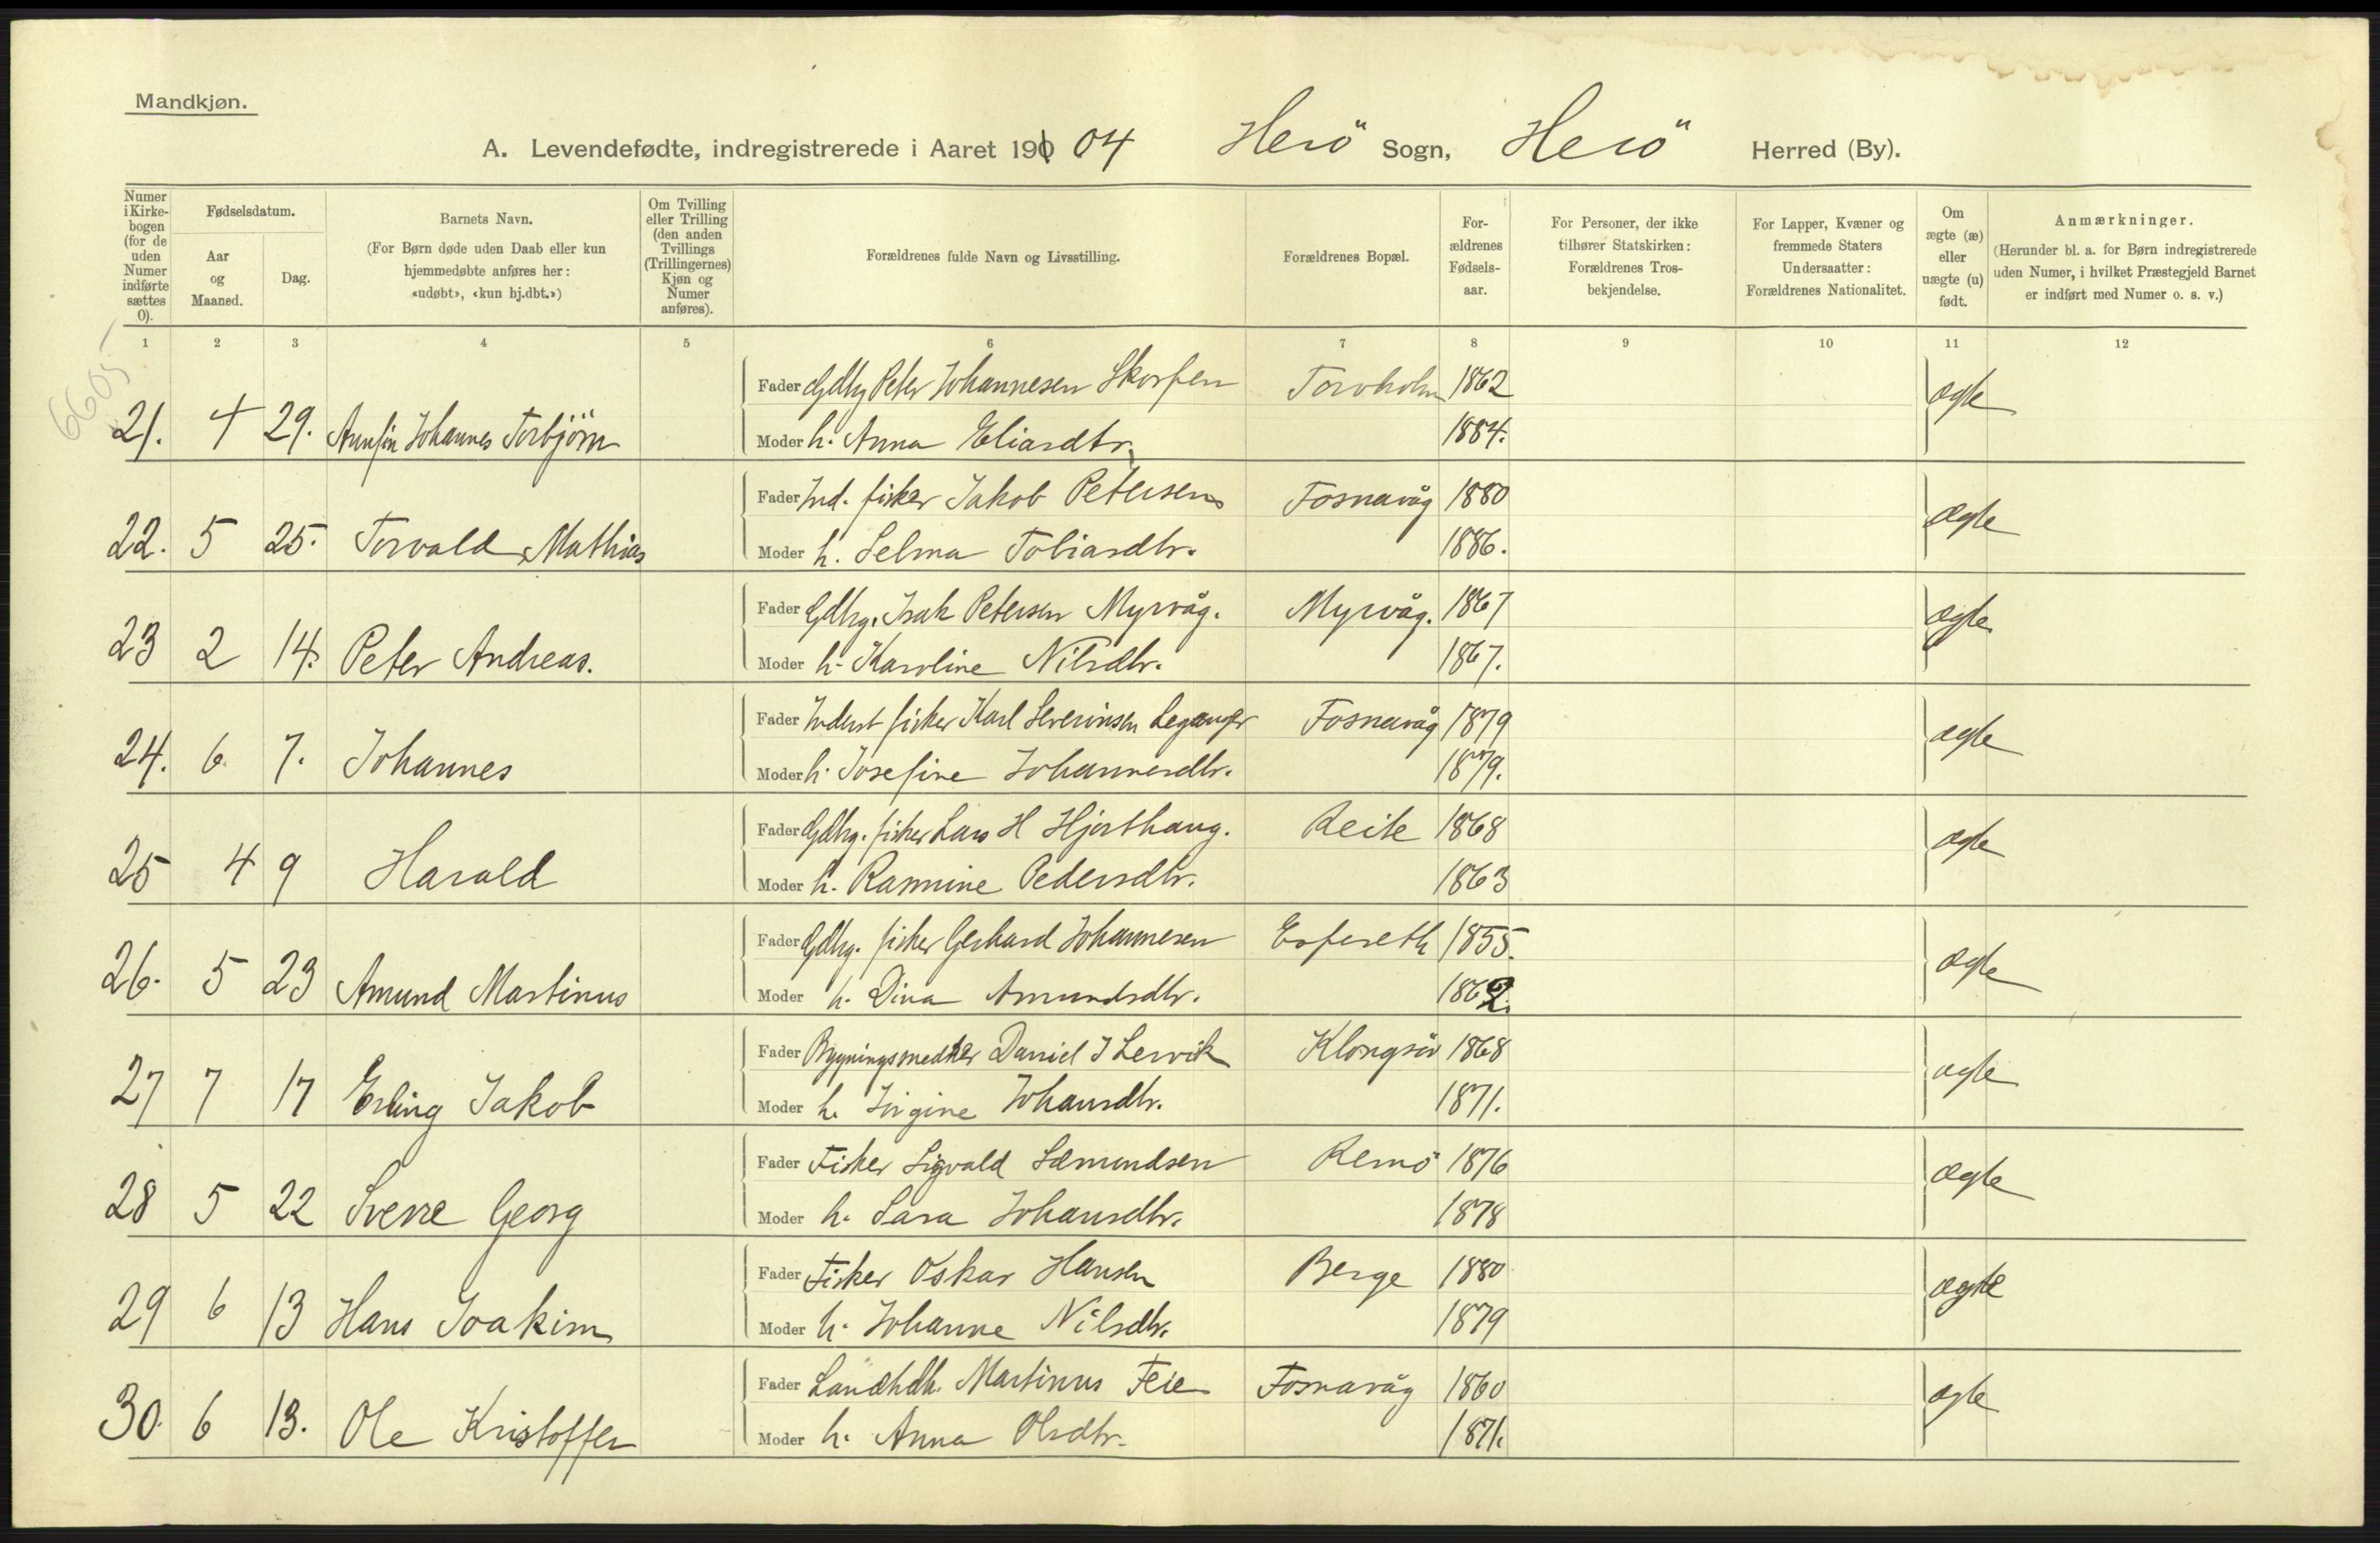 Mandkjøn.
A. Levendefødte, indregistrerede i Aaret 190 04 Herö Sogn, Herö Herred (By).
Numer i Kirke-bogen (for de uden Numer indførte sættes 0).
Fødselsdatum.
Aar og Maaned.
Dag.
Barnets Navn.
(For Børn døde uden Daab eller kun hjemmedøbte anføres her: «udøbt», «kun hj.dbt.»)
Om Tvilling eller Trilling (den anden Tvillings (Trillingernes) Kjøn og Numer anføres).
Forældrenes fulde Navn og Livsstilling.
Forældrenes Bopæl.
For-ældrenes Fødsels-aar.
For Personer, der ikke tilhører Statskirken: Forældrenes Tros-bekjendelse.
For Lapper, Kvæner og fremmede Staters Undersaatter: Forældrenes Nationalitet.
Om ægte (æ) eller uægte (u) født.
Anmærkninger.
(Herunder bl. a. for Børn indregistrerede uden Numer, i hvilket Præstegjeld Barnet er indført med Numer o. s. v.)
1 2 3 4 5 6 7 8 9 10 11 12
6605
Fader Gdbg Peter Johannesen Skorpen Torvholm 1862 ægte
21. 4 29. Annfin Johannes Torbjörn Moder h. Anna Eliasdtr. 1884.
Fader Ind. fisker Jakob Petersen Fosnavåg 1880 ægte
22. 5 25. Torvald Mathias Moder h. Selma Tobiasdtr. 1886.
Fader Gdbg. Isak Petersen Myrvåg. Myrvåg. 1867 ægte
23 2 14. Peter Andreas. Moder h. Karoline Nilsdtr. 1867.
Fader Inderst fisker Karl Severinsen Leganger Fosnavåg 1879 ægte
24. 6 7. Johannes Moder h. Josefine Johannesdtr. 1879.
Fader Gdbg. fisker Lars H Hjorthaug. Reite 1868 ægte
25 4 9 Harald Moder h. Rasmine Pedersdtr. 1863
Fader Gdbg. fisker Gerhard Johannesen Espeseth 1855. ægte
26. 5 23 Amund Martinus Moder h. Dina Amundsdtr. 1862.
Fader Bygningsmedker Daniel J Lervik 1868 ægte
27 7 17 Erling Jakob Moder h. Jørgine Johansdtr. 1871.
Fader Fisker Sigvald Sæmundsen Remö 1876 ægte
28 5 22 Sverre Georg Moder h. Sara Johansdtr. 1878
Fader Fisker Oskar Hansen Berge 1880 ægte
29 6 13 Hans Joakim Moder h. Johanne Nilsdtr. 1879
Fader Landhdl. Martinus Feie Fosnavåg 1860 ægte
30. 6 13. Ole Kristoffer Moder h. Anna Olsdtr. 1871.